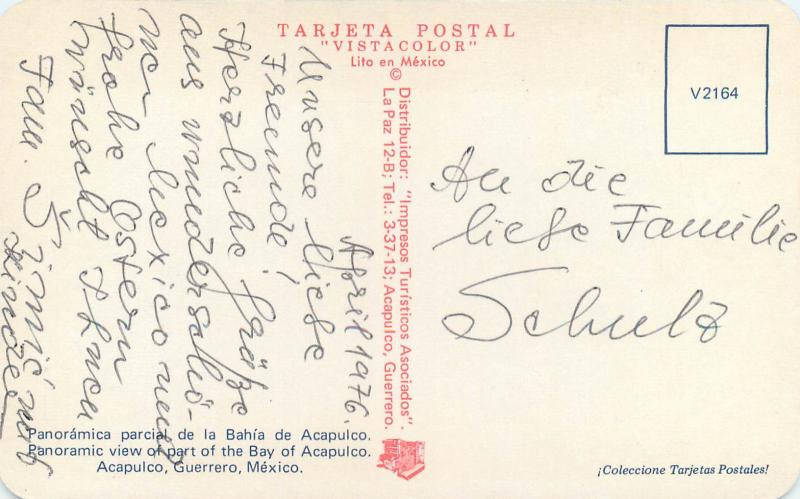 TARJETA POSTAL
"VISTACOLOR"
Lito en México
©
Distribuidor: "Impresos Turísticos Asociados".
La Paz 12-B; Tel.: 3-37-13; Acapulco, Guerrero.
V2164
April 1976.
Unsere liebe
Freunde!
Herzliche Grüße
aus wunderschö-
nen Mexico und
frohe Ostern
wünscht Ihnen
Fam. Šimić mit
Kinder
An die
liebe Familie
Schulz
Panorámica parcial de la Bahía de Acapulco.
Panoramic view of part of the Bay of Acapulco.
Acapulco, Guerrero, México.
¡Coleccione Tarjetas Postales!